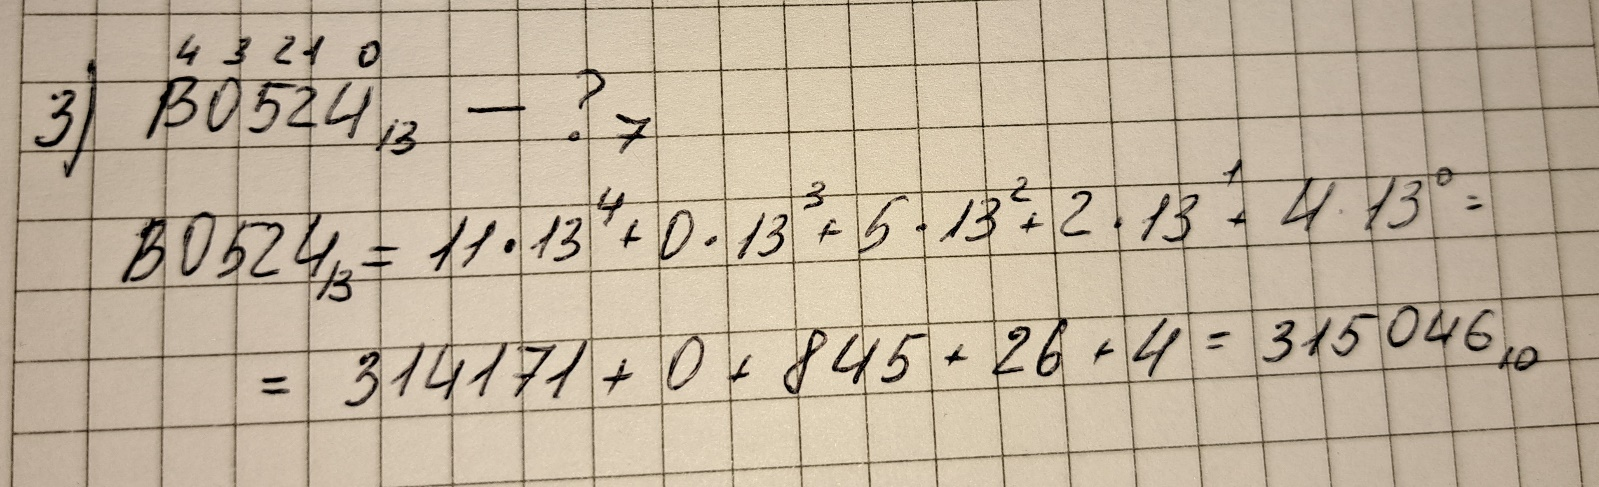 4 3 2 1 0
3) B0524₁₃ — ?₇
B0524₁₃ = 11·13⁴ + 0·13³ + 5·13² + 2·13¹ + 4·13⁰ =
= 314171 + 0 + 845 + 26 + 4 = 315046₁₀